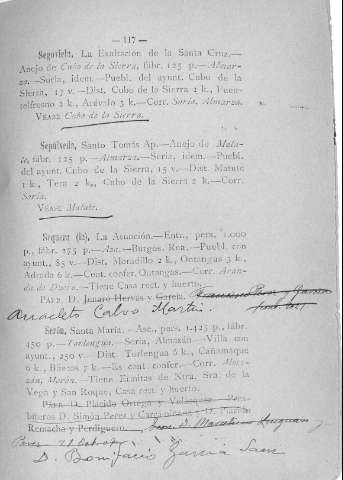 — 117 —
Segoviela, La Exaltación de la Santa Cruz.—
Anejo de Cubo de la Sierra, fábr. 125 p.—Almar-
za.—Soria, idem.—Puebl. del ayunt. Cubo de la
Sierra, 17 v.—Dist. Cubo de la Sierra 1 k., Fuen-
telfresno 2 k., Arévalo 3 k.—Corr. Soria, Almarza.
VÉASE Cubo de la Sierra.
Sepúlveda, Santo Tomás Ap.—Anejo de Matu-
te, fábr. 125 p.—Almarza.—Soria, idem.—Puebl.
del ayunt. Cubo de la Sierra, 15 v.—Dist. Matute
1 k., Tera 2 k., Cubo de la Sierra 2 k.—Corr.
Soria.
VÉASE Matute.
Sequera (la), La Asunción.—Entr., pers. 1.000
p., fábr. 275 p.—Aze.—Burgos, Roa.—Puebl. con
ayunt., 85 v.—Dist. Moradillo 2 k., Ontangas 3 k.,
Adrada 6 k.—Cent. confer. Ontangas.—Corr. Aran-
da de Duero.—Tiene Casa rect. y huerto.
PÁRR. D. Jenaro Hervás y García.
Anacleto Calvo Martín.
Serón, Santa María.—Asc., pers. 1.425 p., fábr.
450 p.—Torlengua.—Soria, Almazán.—Villa con
ayunt., 250 v.—Dist. Torlengua 6 k., Cañamaque
6 k., Bliecos 7 k.—Es cent. confer.—Corr. Alma-
zán, Morón.—Tiene Ermitas de Ntra. Sra. de la
Vega y San Roque, Casa rect. y huerto.
PÁRR. D. Plácido Ortega y Velasco.
D. Simón Pérez y D. Plácido
Remacho y Perdiguero.
D. Bonifacio García Sanz